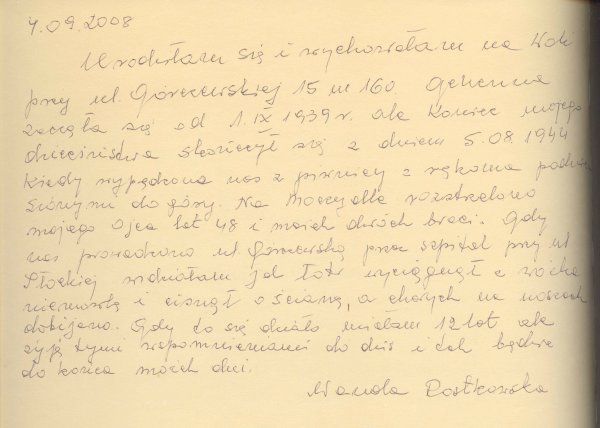 7.09.2008
Urodziłam się i wychowałam na Woli
przy ul. Górczewskiej 15 m 160. Gehenna
zaczęła się od 1.IX 1939 r. ale koniec mojego
dzieciństwa skończył się z dniem 5.08.1944
Kiedy wypędzono nas z piwnicy z rękoma podnie
sionymi do góry. Na Moczydle rozstrzelono
mojego Ojca lat 48 i moich dwóch braci. Gdy
nas prowadzono ul Górczewską przez szpital przy ul
Płockiej widziałam jak łotr wyciągnął z wózka
niemowlę i cisnął o ścianę, a chorych na noszach
dobijano. Gdy to się działo miałam 12 lat ale
żyję tymi wspomnieniami do dziś i tak będzie
do końca moich dni.
Wanda Rostkowska